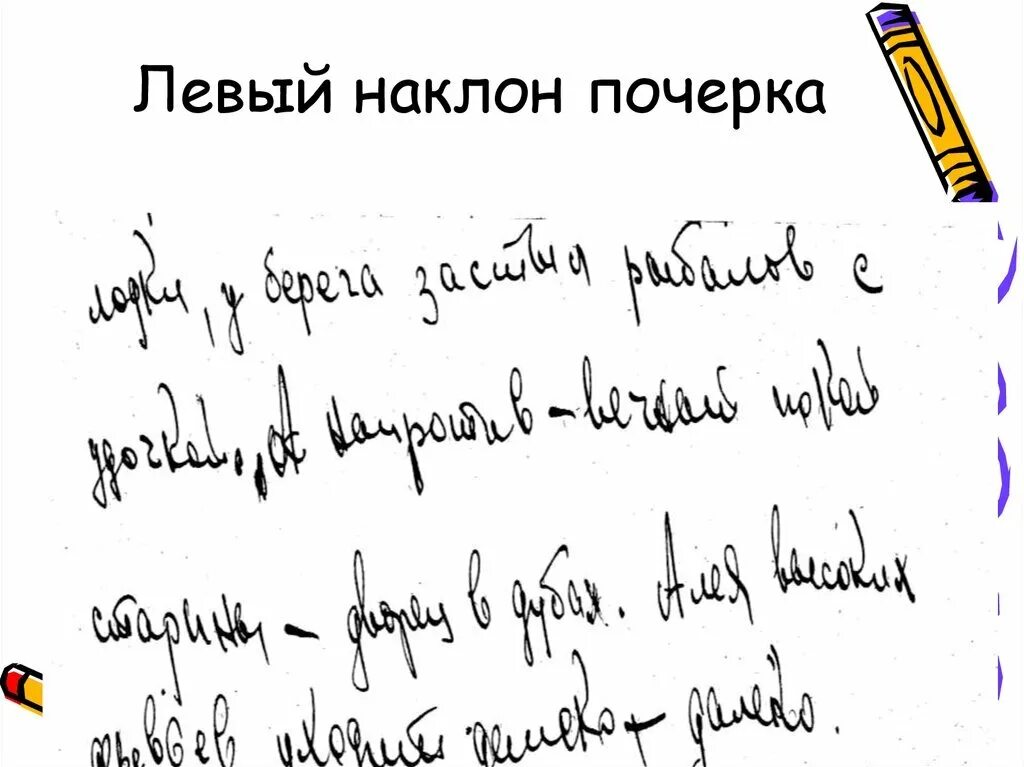 Левый наклон почерка
лодки, у берега застыл рыбалов с
удочкой. А напротив – вечный покой
старины – дворец в дубах. Алея высоких
деревьев уходит далеко – далеко.